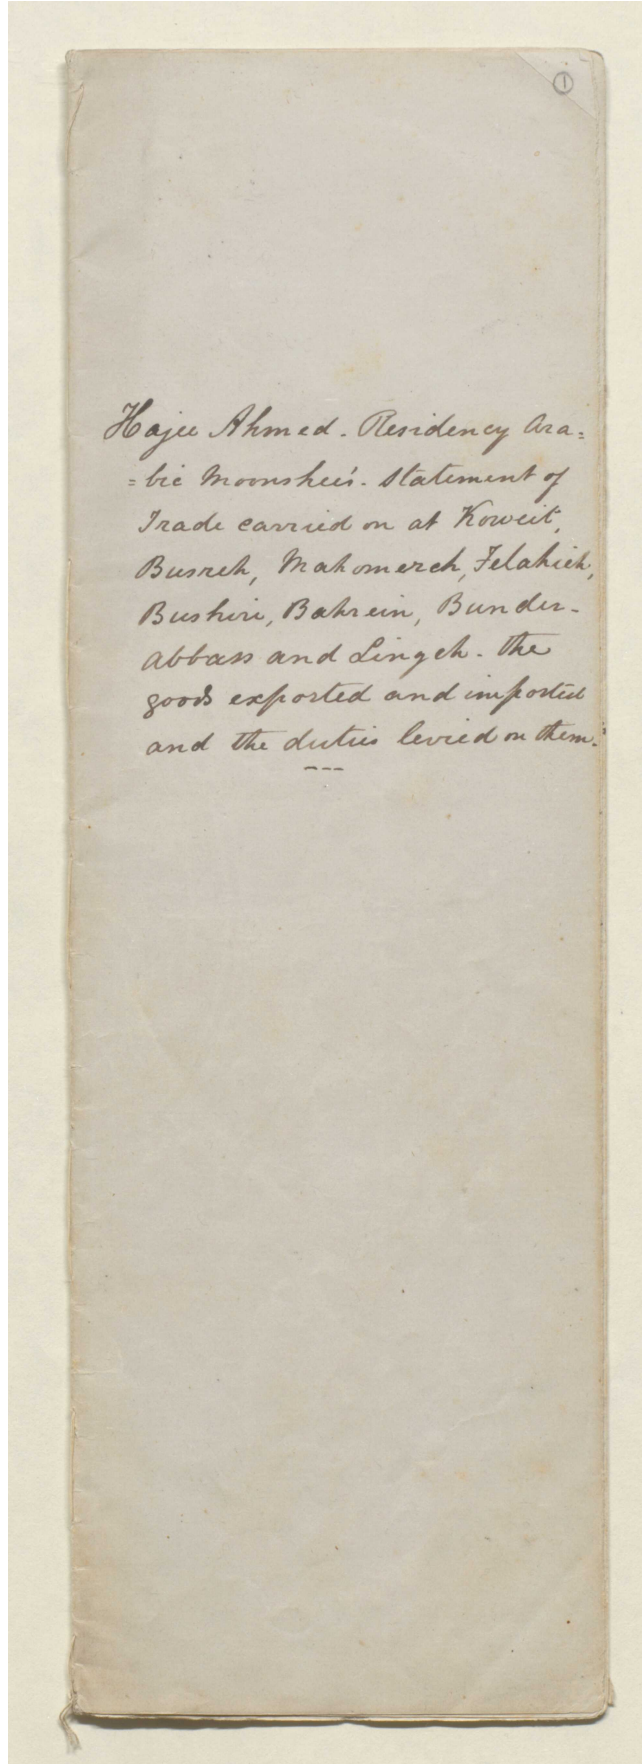 1
Hajee Ahmed. Residency Ara=
=bic Moonshee's. Statement of
Trade carried on at Koweit,
Busreh, Mahomereh, Felahieh,
Bushire, Bahrein, Bunder-
Abbass and Lingeh. the
goods exported and imported
and the duties levied on them.